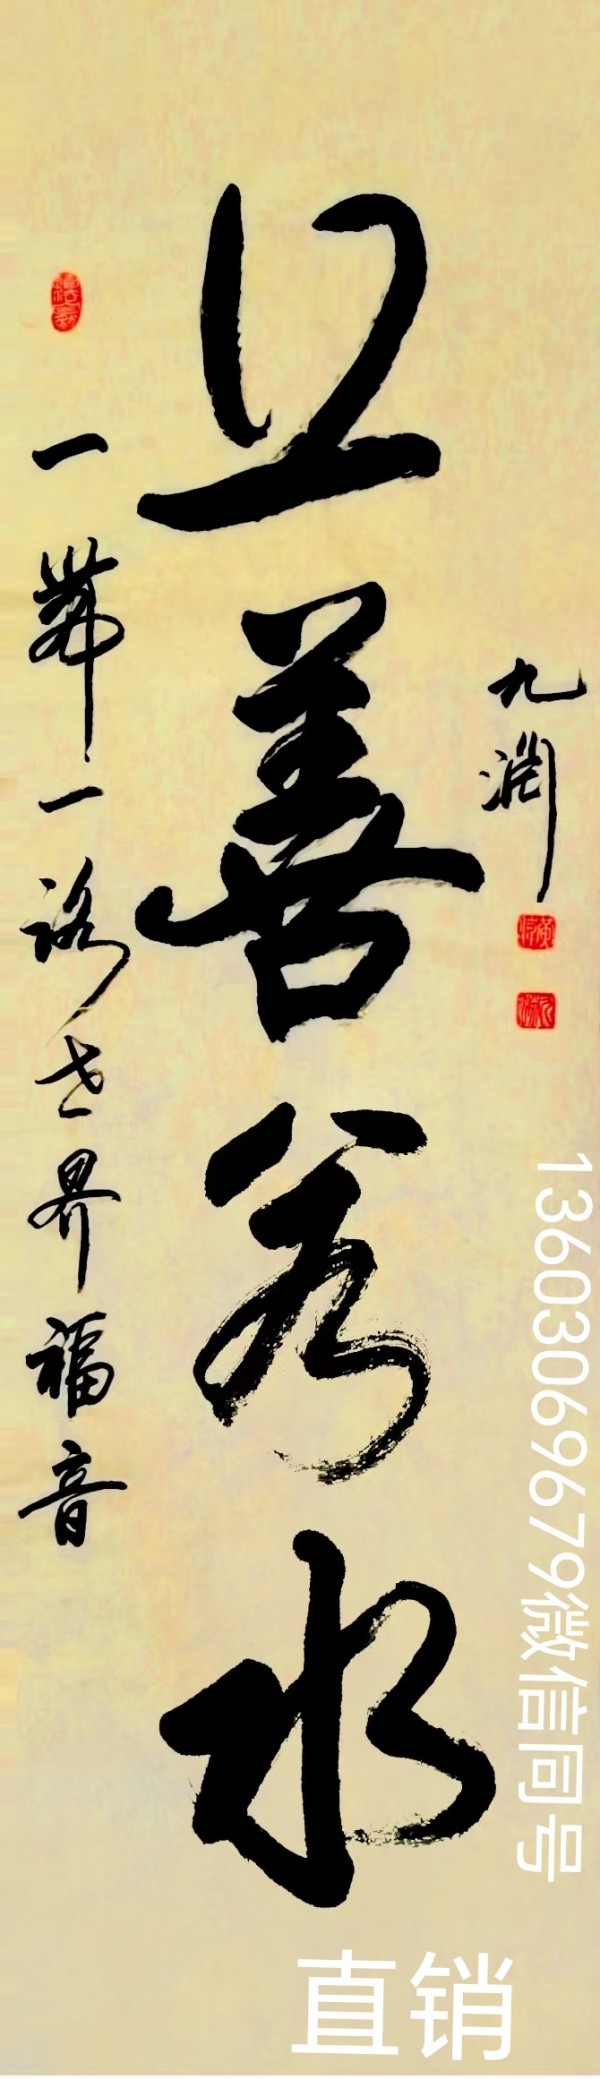 上善若水
一带一路世界福音
九渊
13603069679微信同号
直销